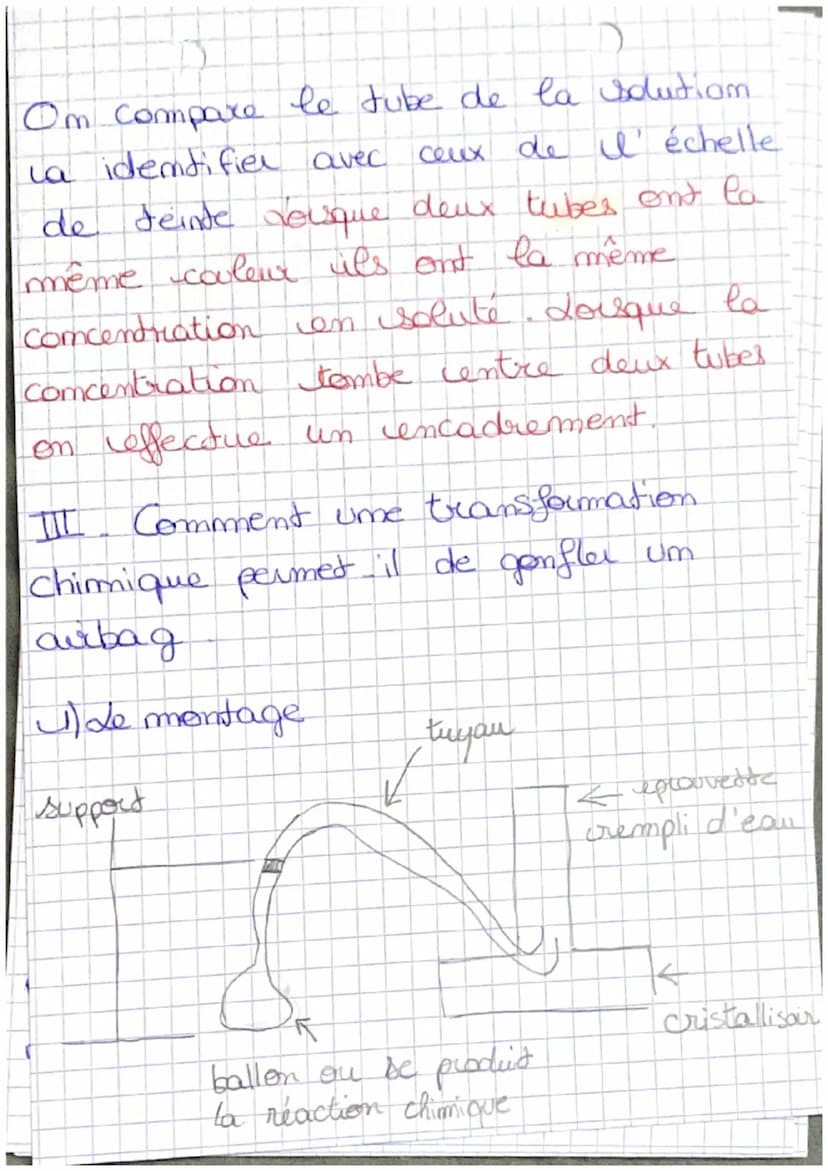 On compare le tube de la solution
à identifier avec ceux de l'échelle
de teinte lorsque deux tubes ont la
même couleur ils ont la même
concentration en soluté. Lorsque la
concentration tombe entre deux tubes
on effectue un encadrement.
III. Comment une transformation
chimique permet-il de gonfler un
airbag
1) Le montage
tuyau
support
← eprouvette
rempli d'eau
cristallisoir
ballon ou se produit
la réaction chimique